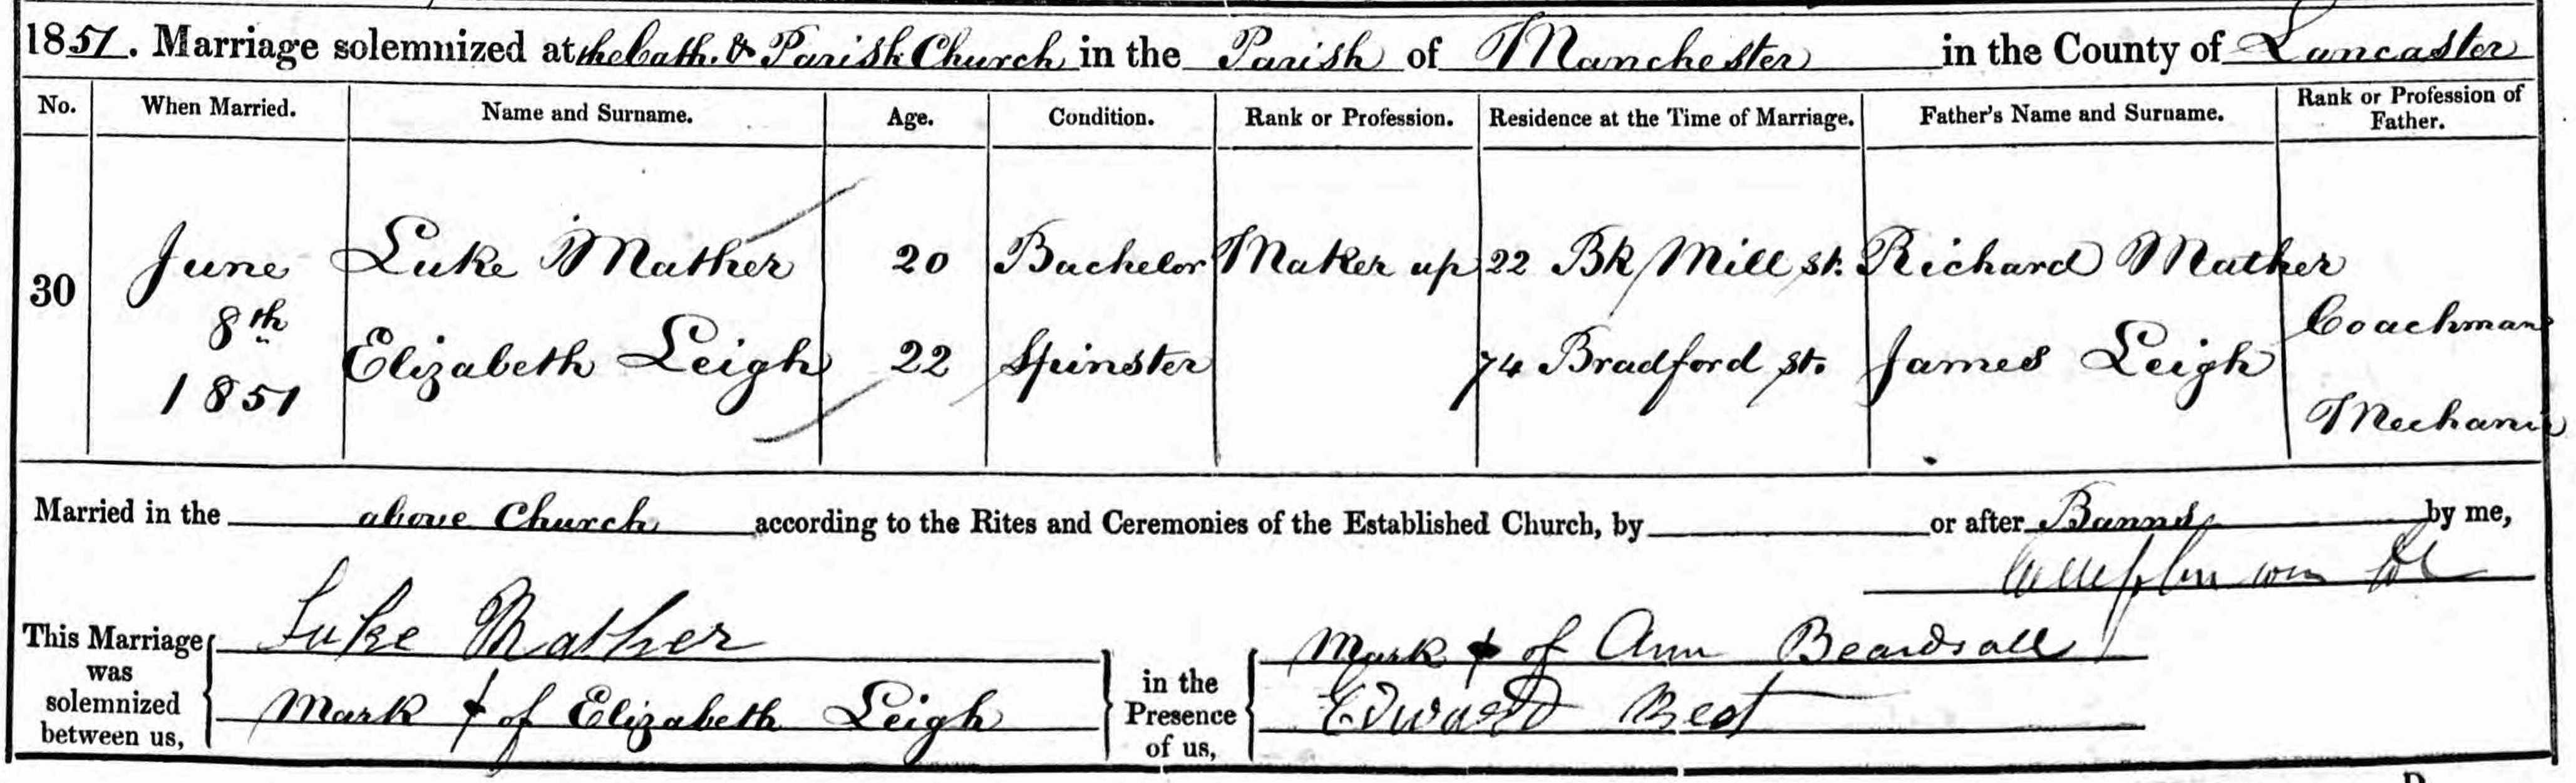 1851. Marriage solemnized at the Cath. & Parish Church in the Parish of Manchester in the County of Lancaster
No. When Married. Name and Surname. Age. Condition. Rank or Profession. Residence at the Time of Marriage. Father's Name and Surname. Rank or Profession of Father.
30 June 8th 1851 Luke Mather 20 Bachelor Maker up 22 Bk Mill st. Richard Mather Coachman
Elizabeth Leigh 22 Spinster 74 Bradford st. James Leigh Mechanic
Married in the above Church according to the Rites and Ceremonies of the Established Church, by or after Banns by me,
This Marriage was solemnized between us, Luke Mather
Mark of Elizabeth Leigh
in the Presence of us, Mark of Ann Beardsall
Edward Best